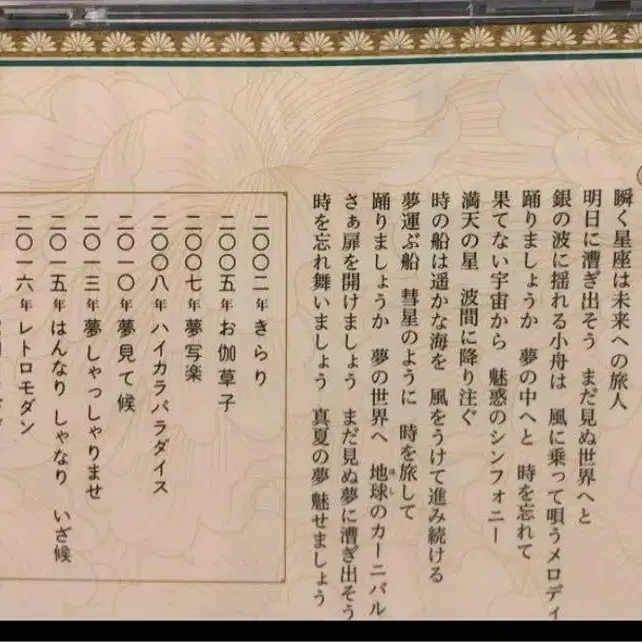 瞬く星座は未来への旅人
明日に漕ぎ出そう　まだ見ぬ世界へと
銀の波に揺れる小舟は　風に乗って唄うメロディ
踊りましょうか　夢の中へと　時を忘れて
果てない宇宙から　魅惑のシンフォニー
満天の星　波間に降り注ぐ
時の船は遥かな海を　風をうけて進み続ける
夢運ぶ船　彗星のように　時を旅して
踊りましょうか　夢の世界へ　地球のカーニバル
ほし
さぁ扉を開けましょう　まだ見ぬ夢に漕ぎ出そう
時を忘れ舞いましょう　真夏の夢 魅せましょう
二〇〇二年 きらり
二〇〇五年 お伽草子
二〇〇七年 夢写楽
二〇〇八年 ハイカラパラダイス
二〇一〇年 夢見て候
二〇一三年 夢しゃっしゃりませ
二〇一五年 はんなり しゃなり いざ候
二〇一六年 レトロモダン